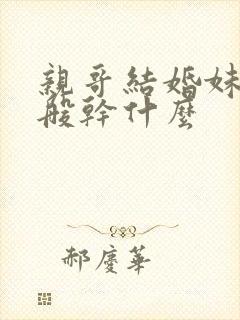 親哥結婚妹
般幹什麼
郝慶華